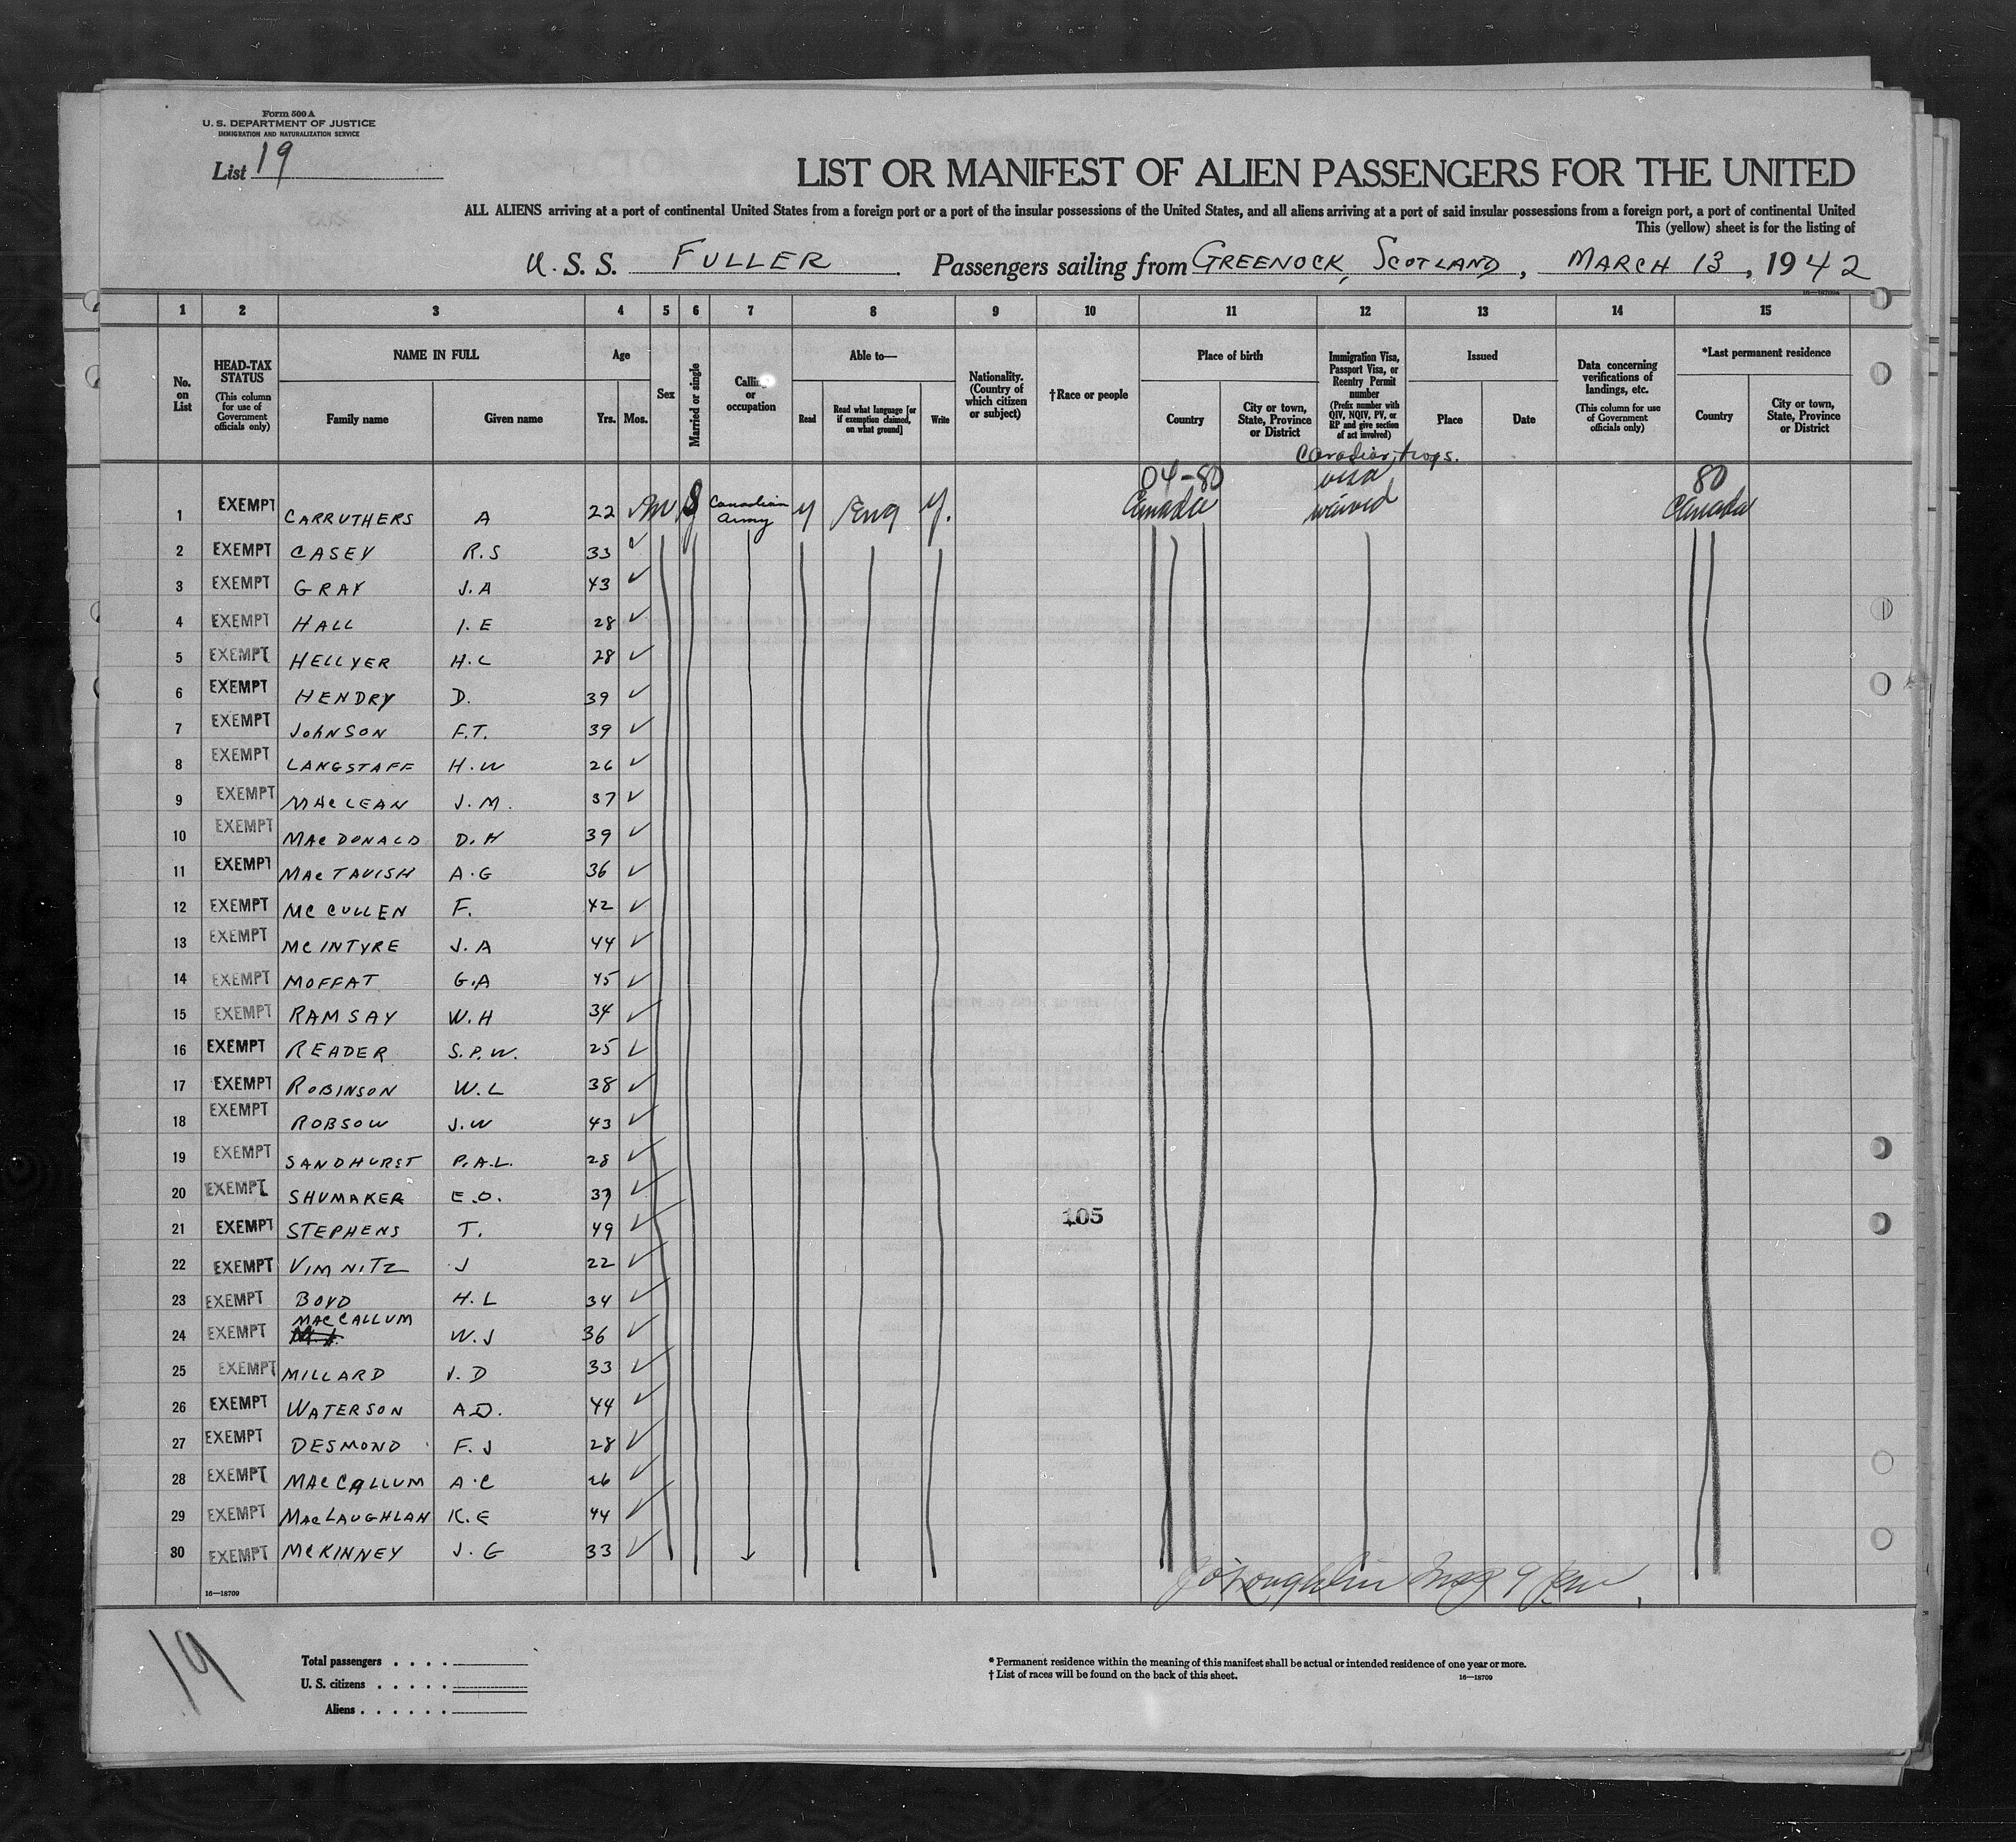 Form 500 A
U. S. DEPARTMENT OF JUSTICE
IMMIGRATION AND NATURALIZATION SERVICE
List 19
LIST OR MANIFEST OF ALIEN PASSENGERS FOR THE UNITED
ALL ALIENS arriving at a port of continental United States from a foreign port or a port of the insular possessions of the United States, and all aliens arriving at a port of said insular possessions from a foreign port, a port of continental United
This (yellow) sheet is for the listing of
U. S. S. FULLER Passengers sailing from GREENOCK, SCOTLAND, MARCH 13, 1942
1 2 3 4 5 6 7 8 9 10 11 12 13 14 15
No. on List
HEAD-TAX STATUS
(This column for use of Government officials only)
NAME IN FULL
Family name Given name
Age
Yrs. Mos.
Sex
Married or single
Calling or occupation
Able to—
Read
Read what language [or if exemption claimed, on what ground]
Write
Nationality. (Country of which citizen or subject)
†Race or people
Place of birth
Country
City or town, State, Province or District
Immigration Visa, Passport Visa, or Reentry Permit number
(Prefix number with QIV, NQIV, PV, or RP and give section of act involved)
Issued
Place Date
Data concerning verifications of landings, etc.
(This column for use of Government officials only)
*Last permanent residence
Country
City or town, State, Province or District
Canadian troops.
04-80 visa 80
1 EXEMPT CARRUTHERS A 22 M S Canadian Army y Eng y. Canada waived Canada
2 EXEMPT CASEY R.S 33
3 EXEMPT GRAY J.A 43
4 EXEMPT HALL I.E 28
5 EXEMPT HELLYER H.L 28
6 EXEMPT HENDRY D. 39
7 EXEMPT JOHNSON F.T. 39
8 EXEMPT LANGSTAFF H.W 26
9 EXEMPT MACLEAN J.M. 37
10 EXEMPT MACDONALD D.H 39
11 EXEMPT MACTAVISH A.G 36
12 EXEMPT MCCULLEN F. 42
13 EXEMPT MCINTYRE J.A 44
14 EXEMPT MOFFAT G.A 45
15 EXEMPT RAMSAY W.H 34
16 EXEMPT READER S.P.W. 25
17 EXEMPT ROBINSON W.L 38
18 EXEMPT ROBSOW J.W 43
19 EXEMPT SANDHURST P.A.L. 28
20 EXEMPT SHUMAKER E.O. 37
21 EXEMPT STEPHENS T. 49 105
22 EXEMPT VIMNITZ J 22
23 EXEMPT BOYD H.L 34
24 EXEMPT MACCALLUM W.J 36
25 EXEMPT MILLARD J.D 33
26 EXEMPT WATERSON A.D. 44
27 EXEMPT DESMOND F.J 28
28 EXEMPT MACCALLUM A.C 26
29 EXEMPT MACLAUGHLAN K.E 44
30 EXEMPT MCKINNEY J.G 33
16—18709
19
Total passengers
U. S. citizens
Aliens
* Permanent residence within the meaning of this manifest shall be actual or intended residence of one year or more.
† List of races will be found on the back of this sheet.
16—18709